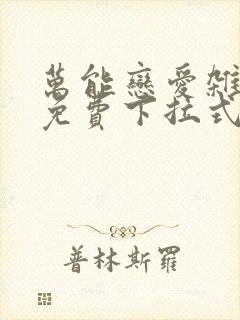 萬能戀愛雜
免費下拉式
普林斯羅